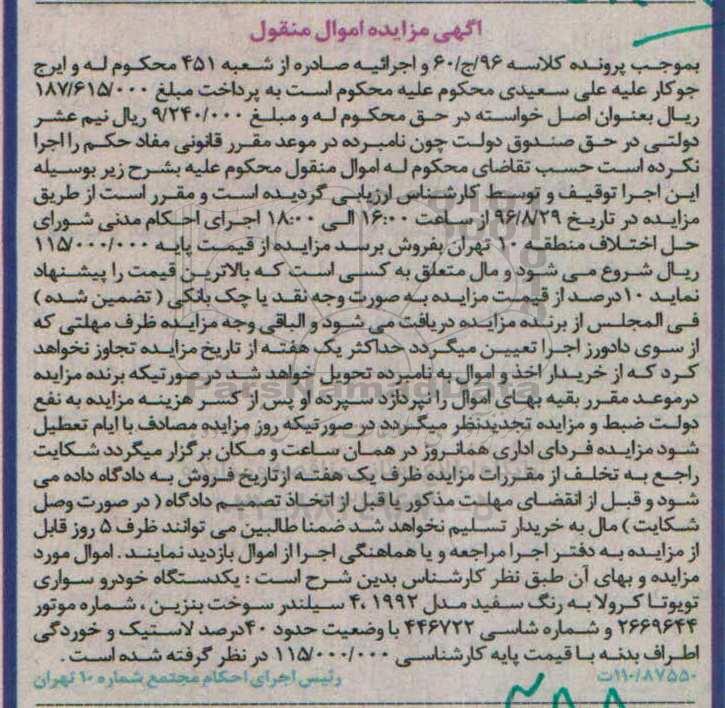 آگهی مزایده اموال منقول
بموجب پرونده کلاسه ۹۶/ج/۶۰ و اجرائیه صادره از شعبه ۴۵۱ محکوم له و ایرج
جوکار علیه علی سعیدی محکوم علیه محکوم است به پرداخت مبلغ ۱۸۷/۶۱۵/۰۰۰
ریال بعنوان اصل خواسته در حق محکوم له و مبلغ ۹/۲۴۰/۰۰۰ ریال نیم عشر
دولتی در حق صندوق دولت چون نامبرده در موعد مقرر قانونی مفاد حکم را اجرا
نکرده است حسب تقاضای محکوم له اموال منقول محکوم علیه بشرح زیر بوسیله
این اجرا توقیف و توسط کارشناس ارزیابی گردیده است و مقرر است از طریق
مزایده در تاریخ ۹۶/۸/۲۹ از ساعت ۱۶:۰۰ الی ۱۸:۰۰ اجرای احکام مدنی شورای
حل اختلاف منطقه ۱۰ تهران بفروش برسد مزایده از قیمت پایه ۱۱۵/۰۰۰/۰۰۰
ریال شروع می شود و مال متعلق به کسی است که بالاترین قیمت را پیشنهاد
نماید ۱۰ درصد از قیمت مزایده به صورت وجه نقد یا چک بانکی ( تضمین شده )
فی المجلس از برنده مزایده دریافت می شود و الباقی وجه مزایده ظرف مهلتی که
از سوی دادورز اجرا تعیین میگردد حداکثر یک هفته از تاریخ مزایده تجاوز نخواهد
کرد که از خریدار اخذ و اموال به نامبرده تحویل خواهد شد در صورتیکه برنده مزایده
درموعد مقرر بقیه بهای اموال را نپردازد سپرده او پس از کسر هزینه مزایده به نفع
دولت ضبط و مزایده تجدیدنظر میگردد در صورتیکه روز مزایده مصادف با ایام تعطیل
شود مزایده فردای اداری همانروز در همان ساعت و مکان برگزار میگردد شکایت
راجع به تخلف از مقررات مزایده ظرف یک هفته ازتاریخ فروش به دادگاه داده می
شود و قبل از انقضای مهلت مذکور یا قبل از اتخاذ تصمیم دادگاه ( در صورت وصل
شکایت ) مال به خریدار تسلیم نخواهد شد ضمنا طالبین می توانند ظرف ۵ روز قابل
از مزایده به دفتر اجرا مراجعه و یا هماهنگی اجرا از اموال بازدید نمایند . اموال مورد
مزایده و بهای آن طبق نظر کارشناس بدین شرح است : یکدستگاه خودرو سواری
تویوتا کرولا به رنگ سفید مدل ۱۹۹۲ ،۴ سیلندر سوخت بنزین ، شماره موتور
۲۶۶۹۶۴۴ و شماره شاسی ۴۴۶۷۲۲ با وضعیت حدود ۴۰درصد لاستیک و خوردگی
اطراف بدنه با قیمت پایه کارشناسی ۱۱۵/۰۰۰/۰۰۰ در نظر گرفته شده است .
۱۱۰/۸۷۵۵۰ت رئیس اجرای احکام مجتمع شماره ۱۰ تهران
ParsNamadData